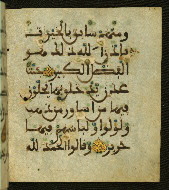 ومنهم سابق بالخيرت
بإذن الله ذلك هو
الفضل الكبير جنت
عدن يدخلونها يحلون
فيها من أساور من ذهب
ولؤلؤا ولباسهم فيها
حرير وقالوا الحمد لله